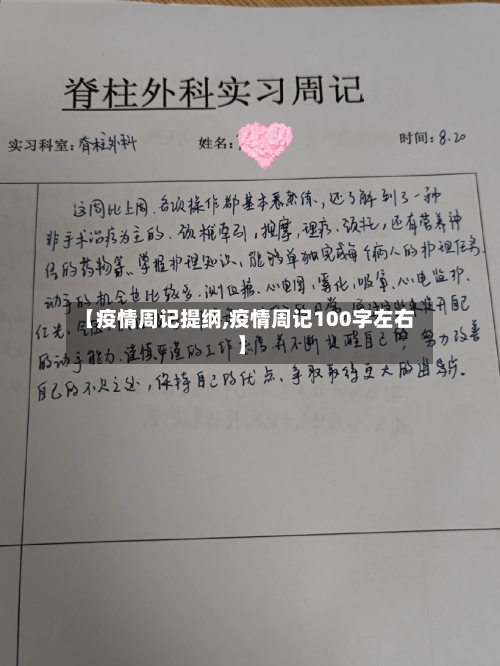 脊柱外科实习周记
实习科室：脊柱外科 姓名： 时间：8.20
这周比上周，各项操作都基本熟练，还了解到了一种
非手术治疗为主的，颈椎牵引，按摩，理疗、颈托，还有营养神
经的药物等。掌握护理知识、能够单独完成每个病人的护理任务。
动手的机会也比较多，测血糖、心电图，雾化，吸氧、心电监护、
红光，
【疫情周记提纲,疫情周记100字左右
】
的动手能力，谨慎严谨的工作态度并不断提醒自己的，努力改善
自己的不足之处，保持自己的优点、争取取得更大的进步。